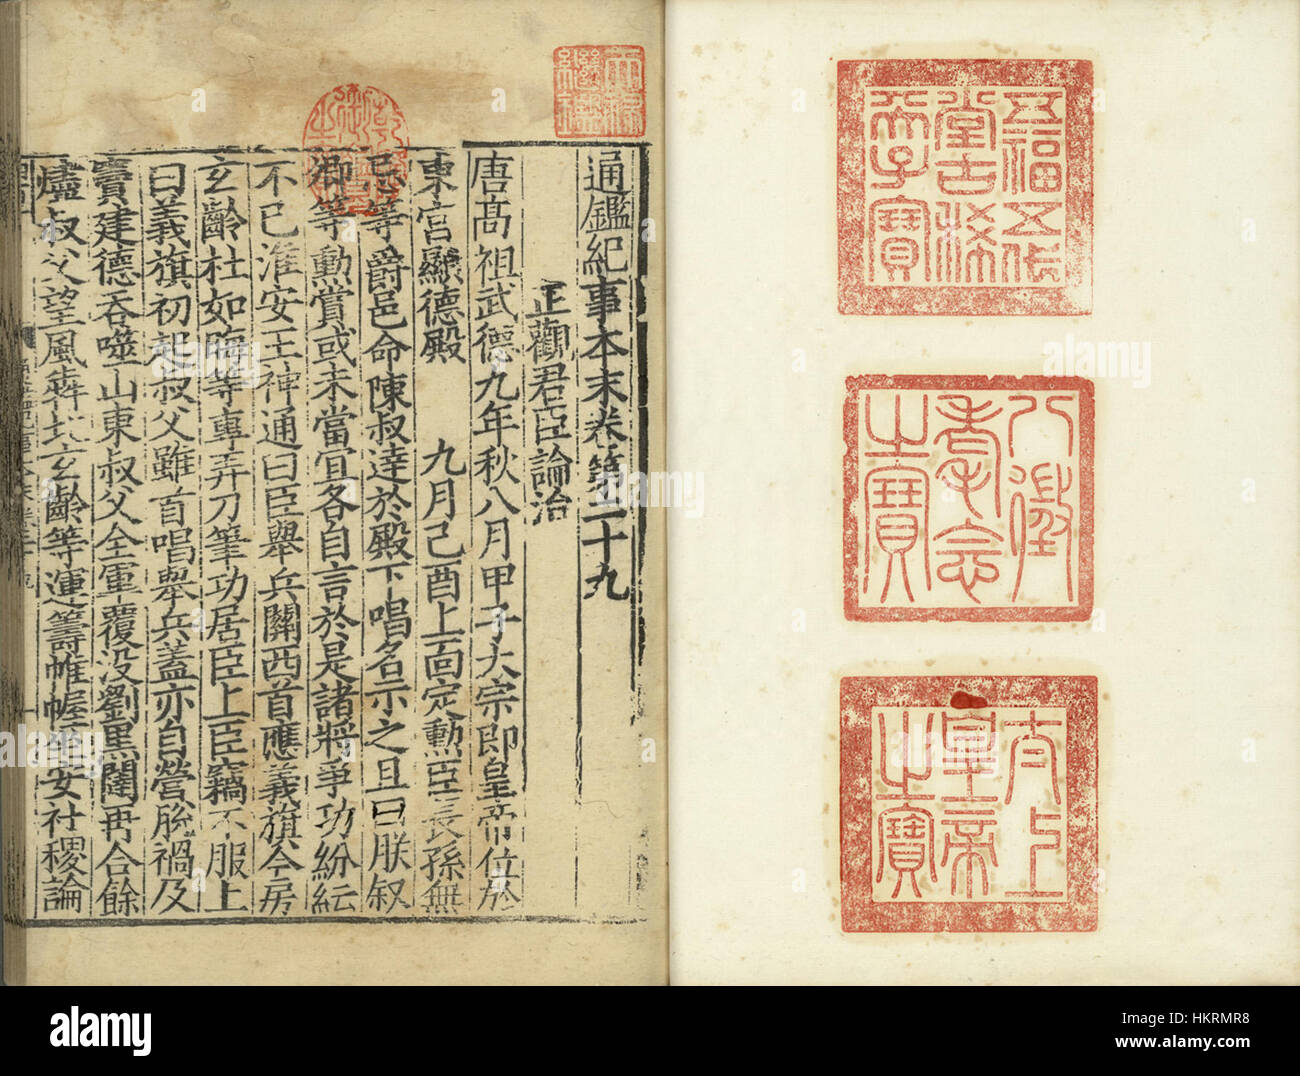 五福五代
堂古稀
天子寶
八徵
耄念
之寶
太上
皇帝
之寶
天祿
繼鑑
通鑑紀事本末卷第二十九
正觀君臣論治
唐髙祖武德九年秋八月甲子太宗即皇帝位於
東宮顯德殿 九月己酉上面定勲臣長孫無
忌等爵邑命陳叔逹於殿下唱名示之且曰朕叙
卿等勳賞或未當宜各自言於是諸將爭功紛紜
不已淮安王神通曰臣舉兵關西首應義旗今房
玄齡杜如晦等專弄刀筆功居臣上臣竊不服上
曰義旗初起叔父雖首唱舉兵蓋亦自營脫禍及
竇建德吞噬山東叔父全軍覆没劉黒闥再合餘
燼叔父望風奔北玄齡等運籌帷幄坐安社稷論
alamy
alamy
HKRMR8
www.alamy.com